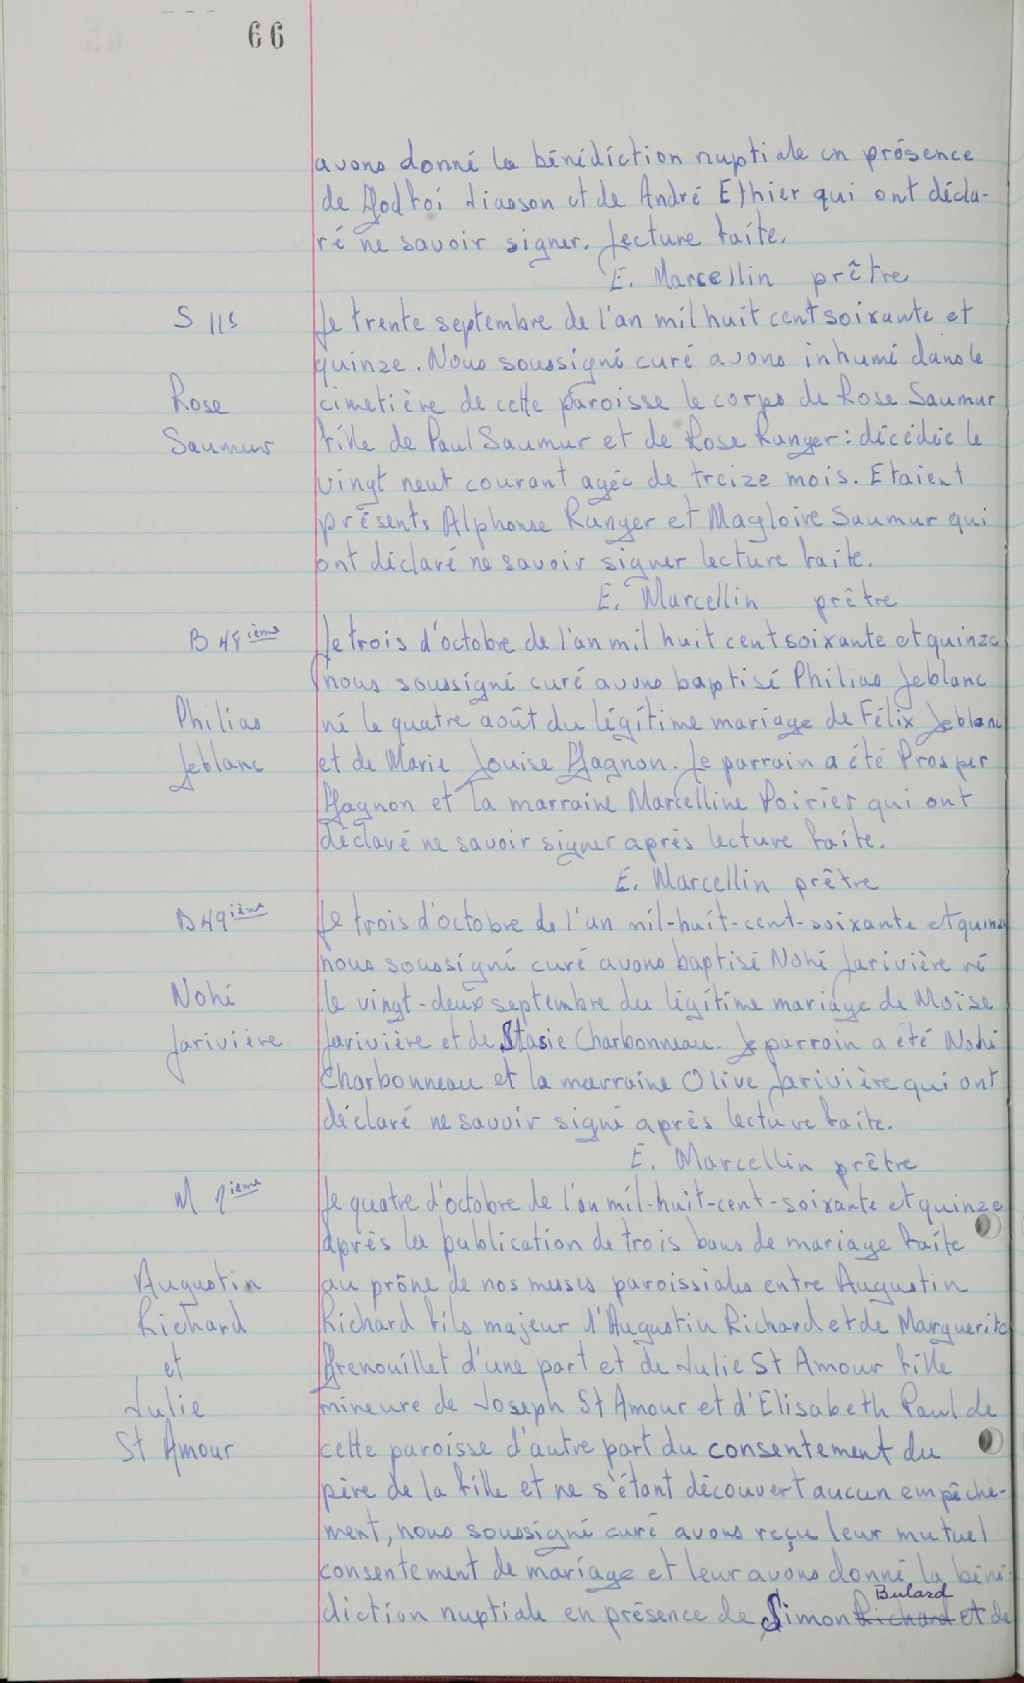 66
avons donné la bénédiction nuptiale en présence
de Godfroi Siasson et de André Ethier qui ont décla-
ré ne savoir signer. Lecture faite.
E. Marcellin prêtre
S 11e
Rose
Saumur
Le trente septembre de l'an mil huit cent soixante et
quinze. Nous soussigné curé avons inhumé dans le
cimetière de cette paroisse le corps de Rose Saumur
fille de Paul Saumur et de Rose Ranger : décédée le
vingt neuf courant agée de treize mois. Etaient
présents Alphonse Ranger et Magloire Saumur qui
ont déclaré ne savoir signer lecture faite.
E. Marcellin prêtre
B 48ième
Philias
Leblanc
Le trois d'octobre de l'an mil huit cent soixante et quinze
nous soussigné curé avons baptisé Philias Leblanc
né le quatre août du légitime mariage de Félix Leblanc
et de Marie Louise Gagnon. Le parrain a été Prosper
Gagnon et la marraine Marcelline Poirier qui ont
déclaré ne savoir signer après lecture faite.
E. Marcellin prêtre
B 49ième
Nohé
Larivière
Le trois d'octobre de l'an mil-huit-cent-soixante et quinze
nous soussigné curé avons baptisé Nohé Larivière né
le vingt-deux septembre du légitime mariage de Moïse
Larivière et de Stasie Charbonneau. Le parrain a été Nohé
Charbonneau et la marraine Olive Larivière qui ont
déclaré ne savoir signé après lecture faite.
E. Marcellin prêtre
M 7ième
Augustin
Richard
et
Julie
St Amour
Le quatre d'octobre de l'an mil-huit-cent-soixante et quinze
après la publication de trois bans de mariage faite
au prône de nos messes paroissiales entre Augustin
Richard fils majeur d'Augustin Richard et de Marguerite
Grenouillet d'une part et de Julie St Amour fille
mineure de Joseph St Amour et d'Elisabeth Paul de
cette paroisse d'autre part du consentement du
père de la fille et ne s'étant découvert aucun empêche-
ment, nous soussigné curé avons reçu leur mutuel
consentement de mariage et leur avons donné la béné-
Bulard
diction nuptiale en présence de Simon Richard et de